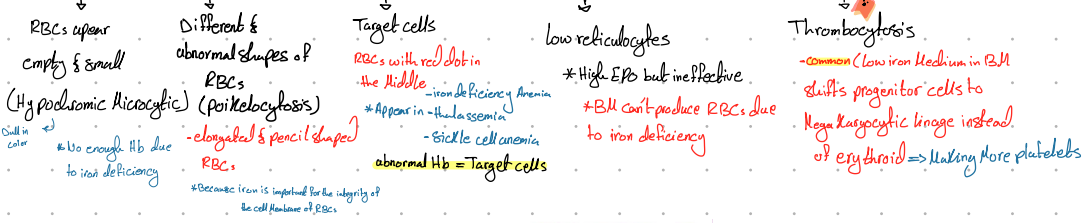 RBCs apear
empty & small
(Hypochromic Microcytic)
Dull in
color
*No enough Hb due
to iron deficiency
Different &
abnormal shapes of
RBCs
(poikelocytosis)
-elongated & pencil shaped
RBCs
*Because iron is important for the integrity of
the cell Membrane of RBCs
Target cells
RBCs with red dot in
the Middle
-iron deficiency Anemia
*Appear in -thalassemia
-Sickle cell anemia
abnormal Hb = Target cells
low reticulocytes
*High EPO but ineffective
*BM can't produce RBCs due
to iron deficiency
Thrombocytosis
-common (low iron Medium in BM
shifts progenitor cells to
Megakaryocytic linage instead
of erythroid => Making More platelets